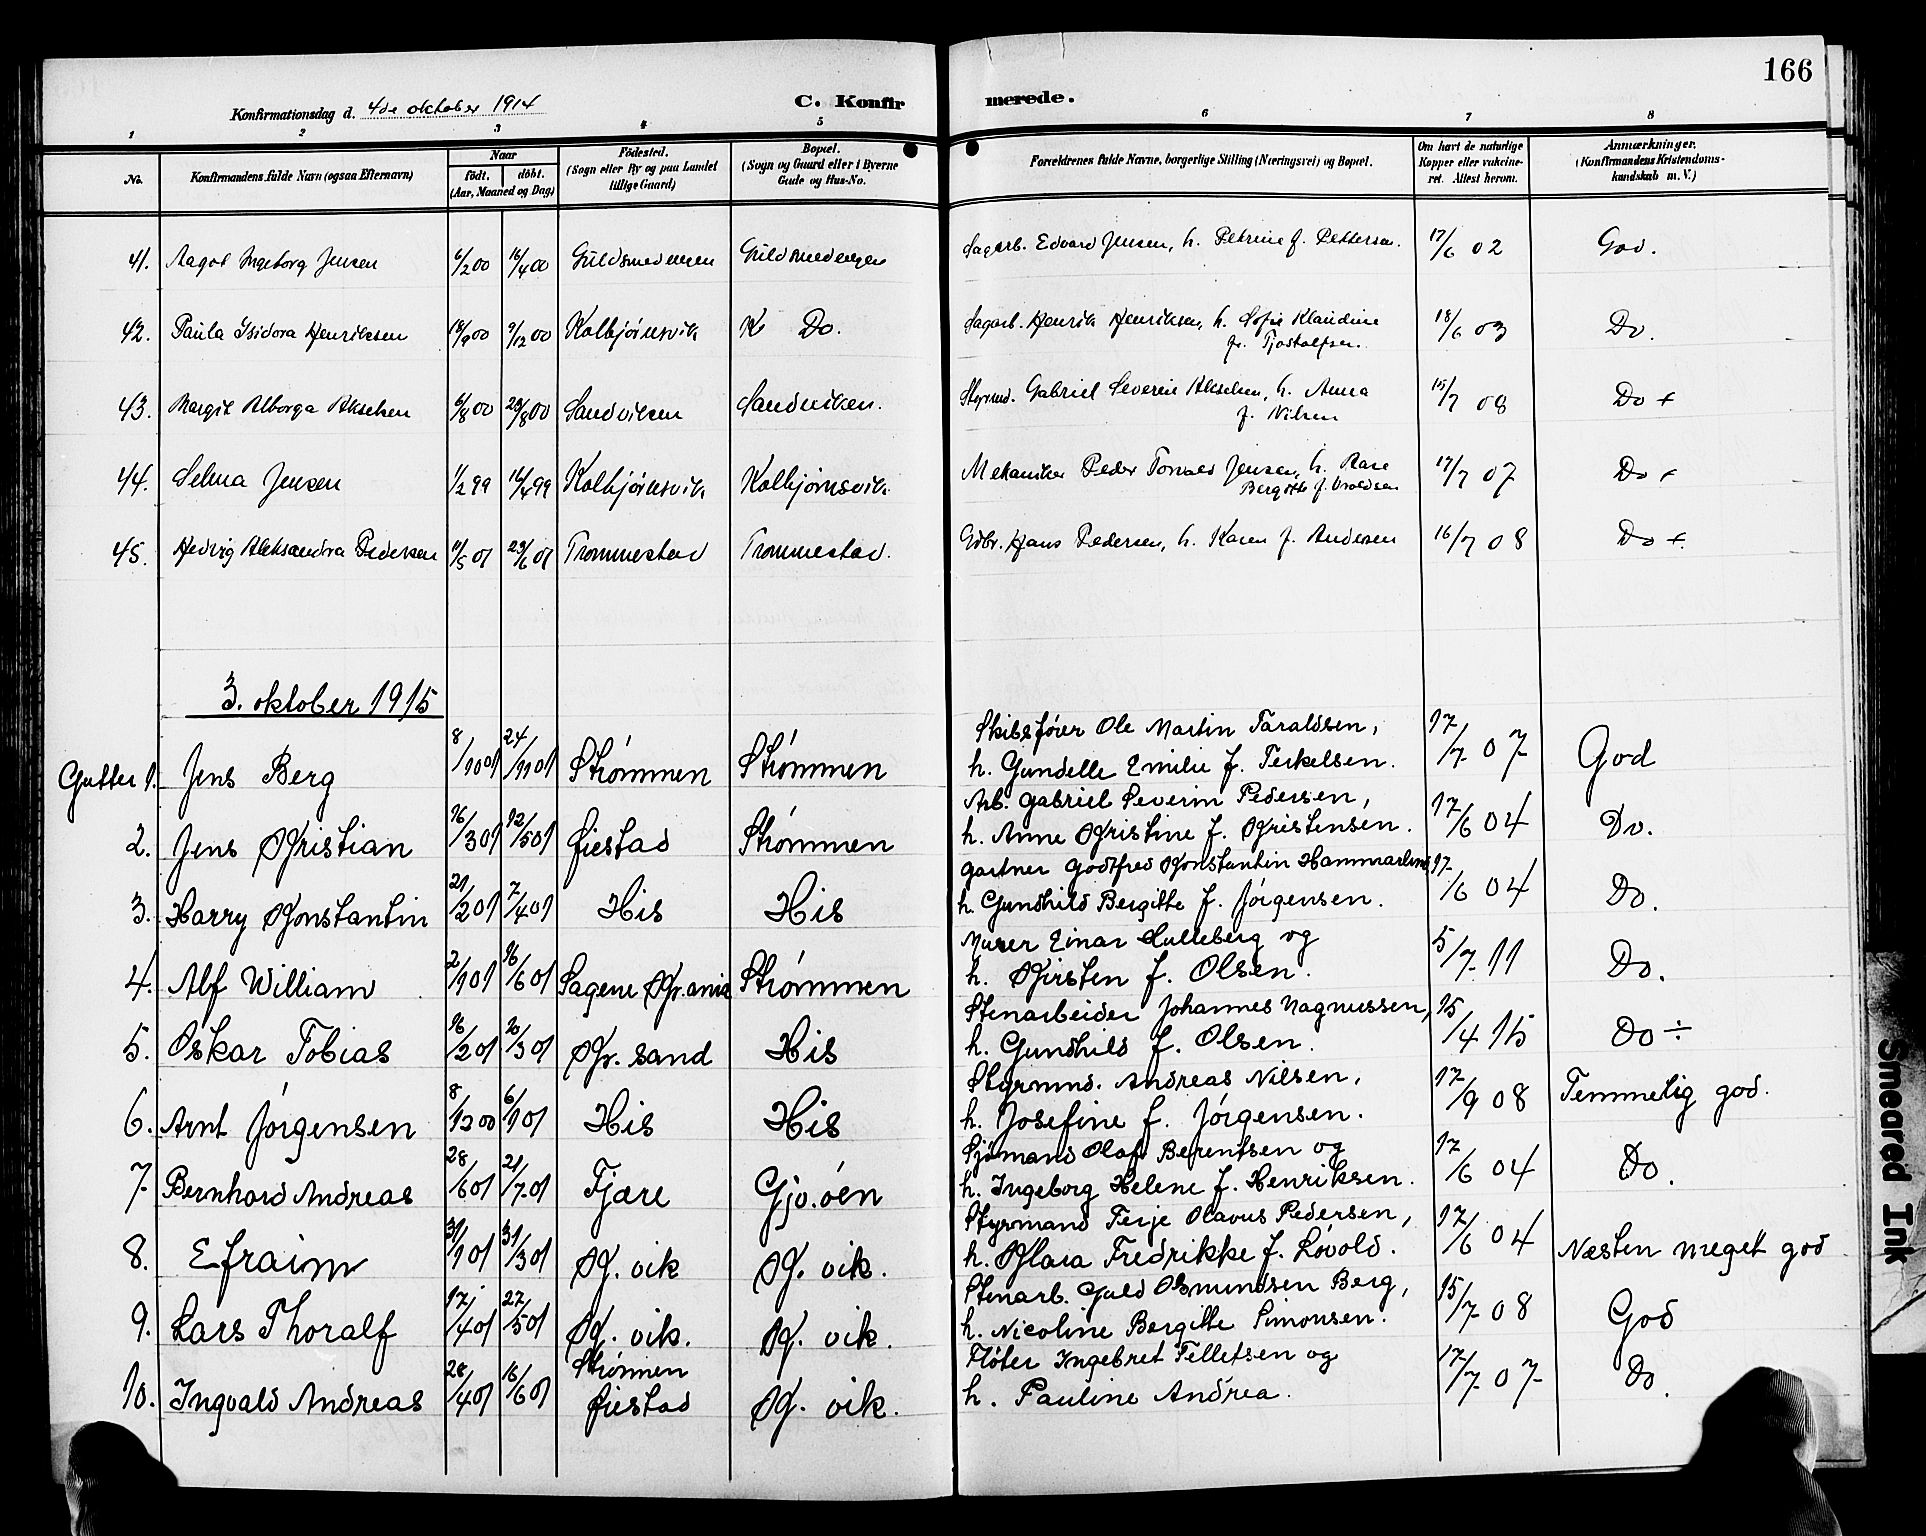 166
Konfirmationsdag d. 4de oktober 1914 C. Konfirmerede.
1 2 3 4 5 6 7 8
No. Konfirmandens fulde Navn (ogsaa Efternavn) Naar født. døbt. (Aar, Maaned og Dag) Fødested. (Sogn eller By og paa Landet tillige Gaard) Bopæl. (Sogn og Gaard eller i Byerne Gade og Hus-No. Forældrenes fulde Navne, borgerlige Stilling (Næringsvei) og Bopæl. Om havt de naturlige Kopper eller vakcineret. Attest herom. Anmærkninger. (Konfirmandens Kristendomskundskab m. V.)
41. Aagot Ingeborg Jensen 6/2 00 16/4 00 Guldsmedengen Guldsmedengen Sagarb. Edvard Jensen, h. Petrine f. Pettersen. 17/6 02 God.
42. Paula Isidora Henriksen 18/9 00 9/12 00 Kolbjørnsvik K Do. Sagarb. Henrik Henriksen, h. Sofie Klaudine 18/6 03 Do.
f. Tjostolfsen.
43. Margit Alborga Akselsen 6/8 00 28/8 00 Sandviken Sandviken. Styrmd. Gabriel Severin Akselsen, h. Anna 15/7 08 Do +
f. Nilsen
44. Selma Jensen 1/2 99 16/4 99 Kolbjørnsvik Kolbjørnsvik Mekaniker Peder Tomas Jensen, h. Aase 17/7 07 Do +
f.
45. Hedvig Aleksandra Pedersen 11/5 01 29/6 01 Trommestad Trommestad. Gdbr. Hans Pedersen, h. Karen f. Andersen 16/7 08 Do +
3. oktober 1915
Skibsfører Ole Martin Taraldsen,
Gutter 1. Jens Berg 8/10 01 24/11 01 Strømmen Strømmen h. Gundelle Emilie f. Terkelsen. 17/7 07 God
Arb. Gabriel Severin Pedersen,
2. Jens Kristian 16/3 01 12/5 01 Øiestad Strømmen h. Anne Kristine f. Kristensen. 17/6 04 Do.
Gartner Godtfred Konstantin Hammarlund
3. Harry Konstantin 21/2 01 7/4 01 His His h. Gundhild Bergitte f. Jørgensen. 17/6 04 Do.
Murer Einar Hulleberg og
4. Alf William 2/1 01 16/6 01 Sagene Kr.ania Strømmen h. Kirsten f. Olsen. 5/7 11 Do.
Stenarbeider Johannes Magnussen,
5. Oskar Tobias 16/2 01 20/3 01 Kr. sand His h. Gundhild f. Olsen. 15/4 15 Do ÷
Styrmd. Andreas Nilsen,
6. Arnt Jørgensen 8/12 00 6/1 01 His His h. Josefine f. Jørgensen. 17/9 08 Temmelig god.
Sjømand Olaf Berentsen og
7. Bernhard Andreas 28/6 01 21/7 01 Fjære Gjv.øen h. Ingeborg Helene f. Henriksen. 17/6 04 Do.
Styrmand Terje Olavus Pedersen,
8. Efraim 31/1 01 31/3 01 K. vik K. vik. h. Klara Fredrikke f. Løvold. 17/6 04 Næsten meget god
Stenarb. Guld Osmundsen Berg,
9. Lars Thoralf 17/4 01 27/5 01 K. vik. K. vik. h. Nicoline Bergitte Simonsen. 15/7 08 God
Strømmen Fløter Ingebret Telletsen og
10. Ingvald Andreas 28/4 01 16/6 01 Øiestad K. vik. h. Pauline Andrea. 17/7 07 Do.
Smeared Ink